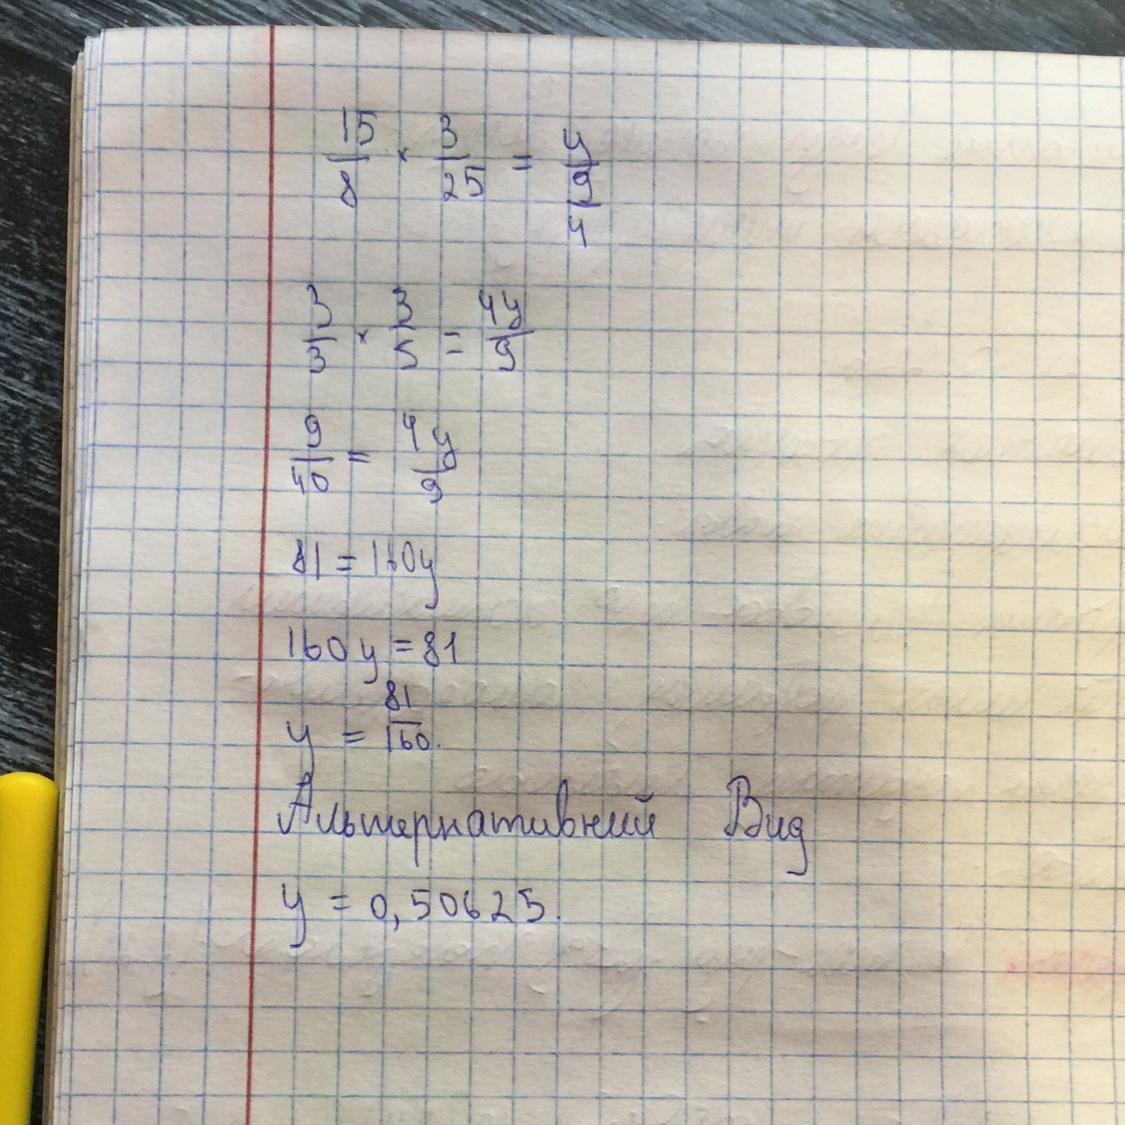 15/8 × 3/25 = y/(9/4)
3/3 × 3/5 = 4y/9
9/40 = 4y/9
81 = 160y
160y = 81
y = 81/160.
Альтернативний Вид
y = 0,50625.